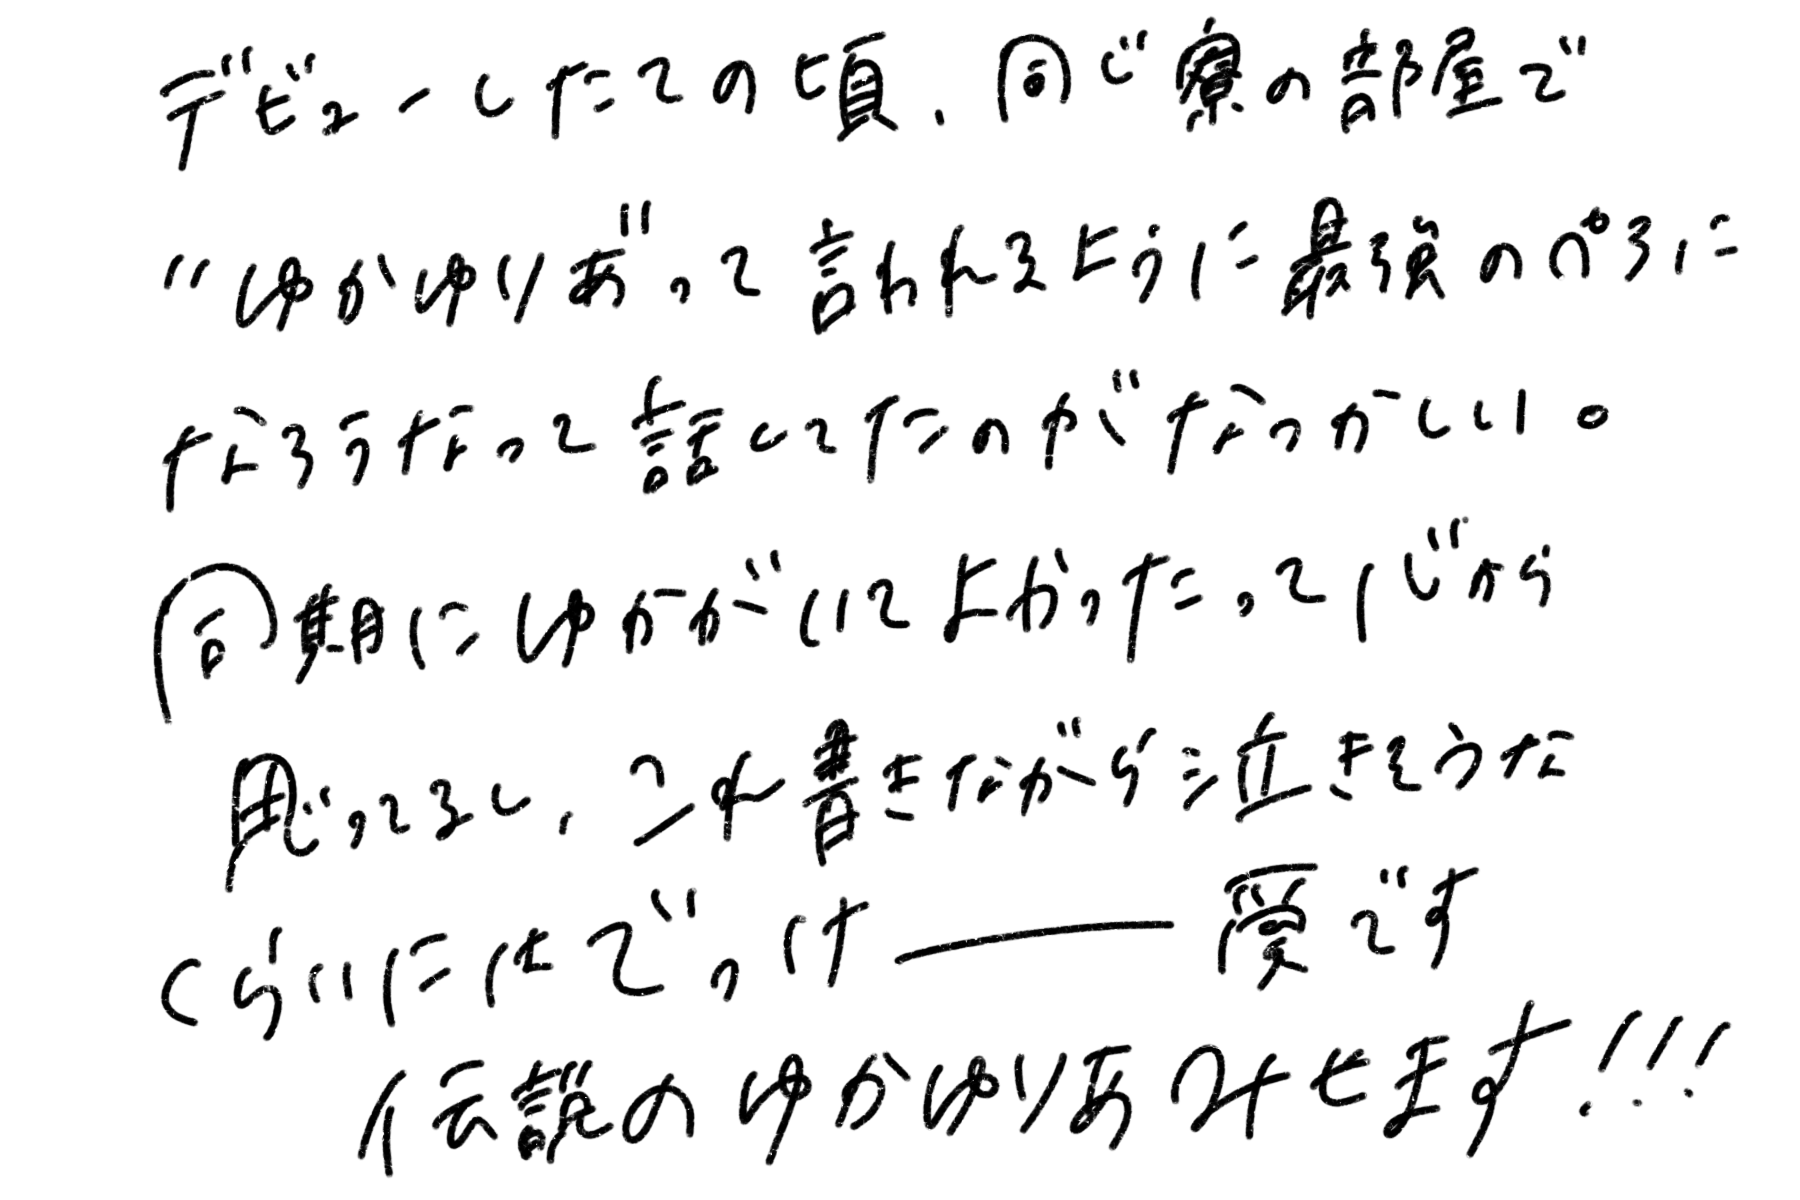 デビューしたての頃、同じ寮の部屋で
"ゆかゆりあ"って言われるように最強のペアに
なろうなって話してたのがなつかしい。
同期にゆかがいてよかったって心から
思ってるし、これ書きながら泣きそうな
くらいにはでっけー愛です
伝説のゆかゆりあみせます!!!